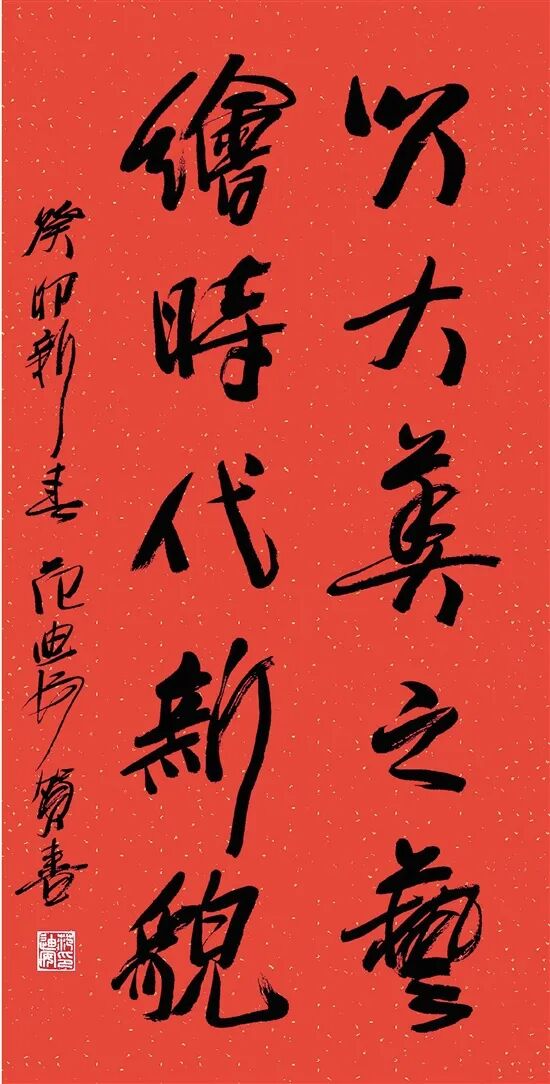 以大美之藝
繪時代新貌
癸卯新春 范迪安 賀書
范迪安印